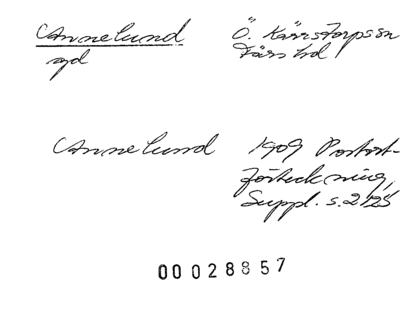 Annelund Ö. Kärrstorps sn
gd Färs hd
Annelund 1909 Postort-
förteckning,
Suppl. s. 2125
00028857